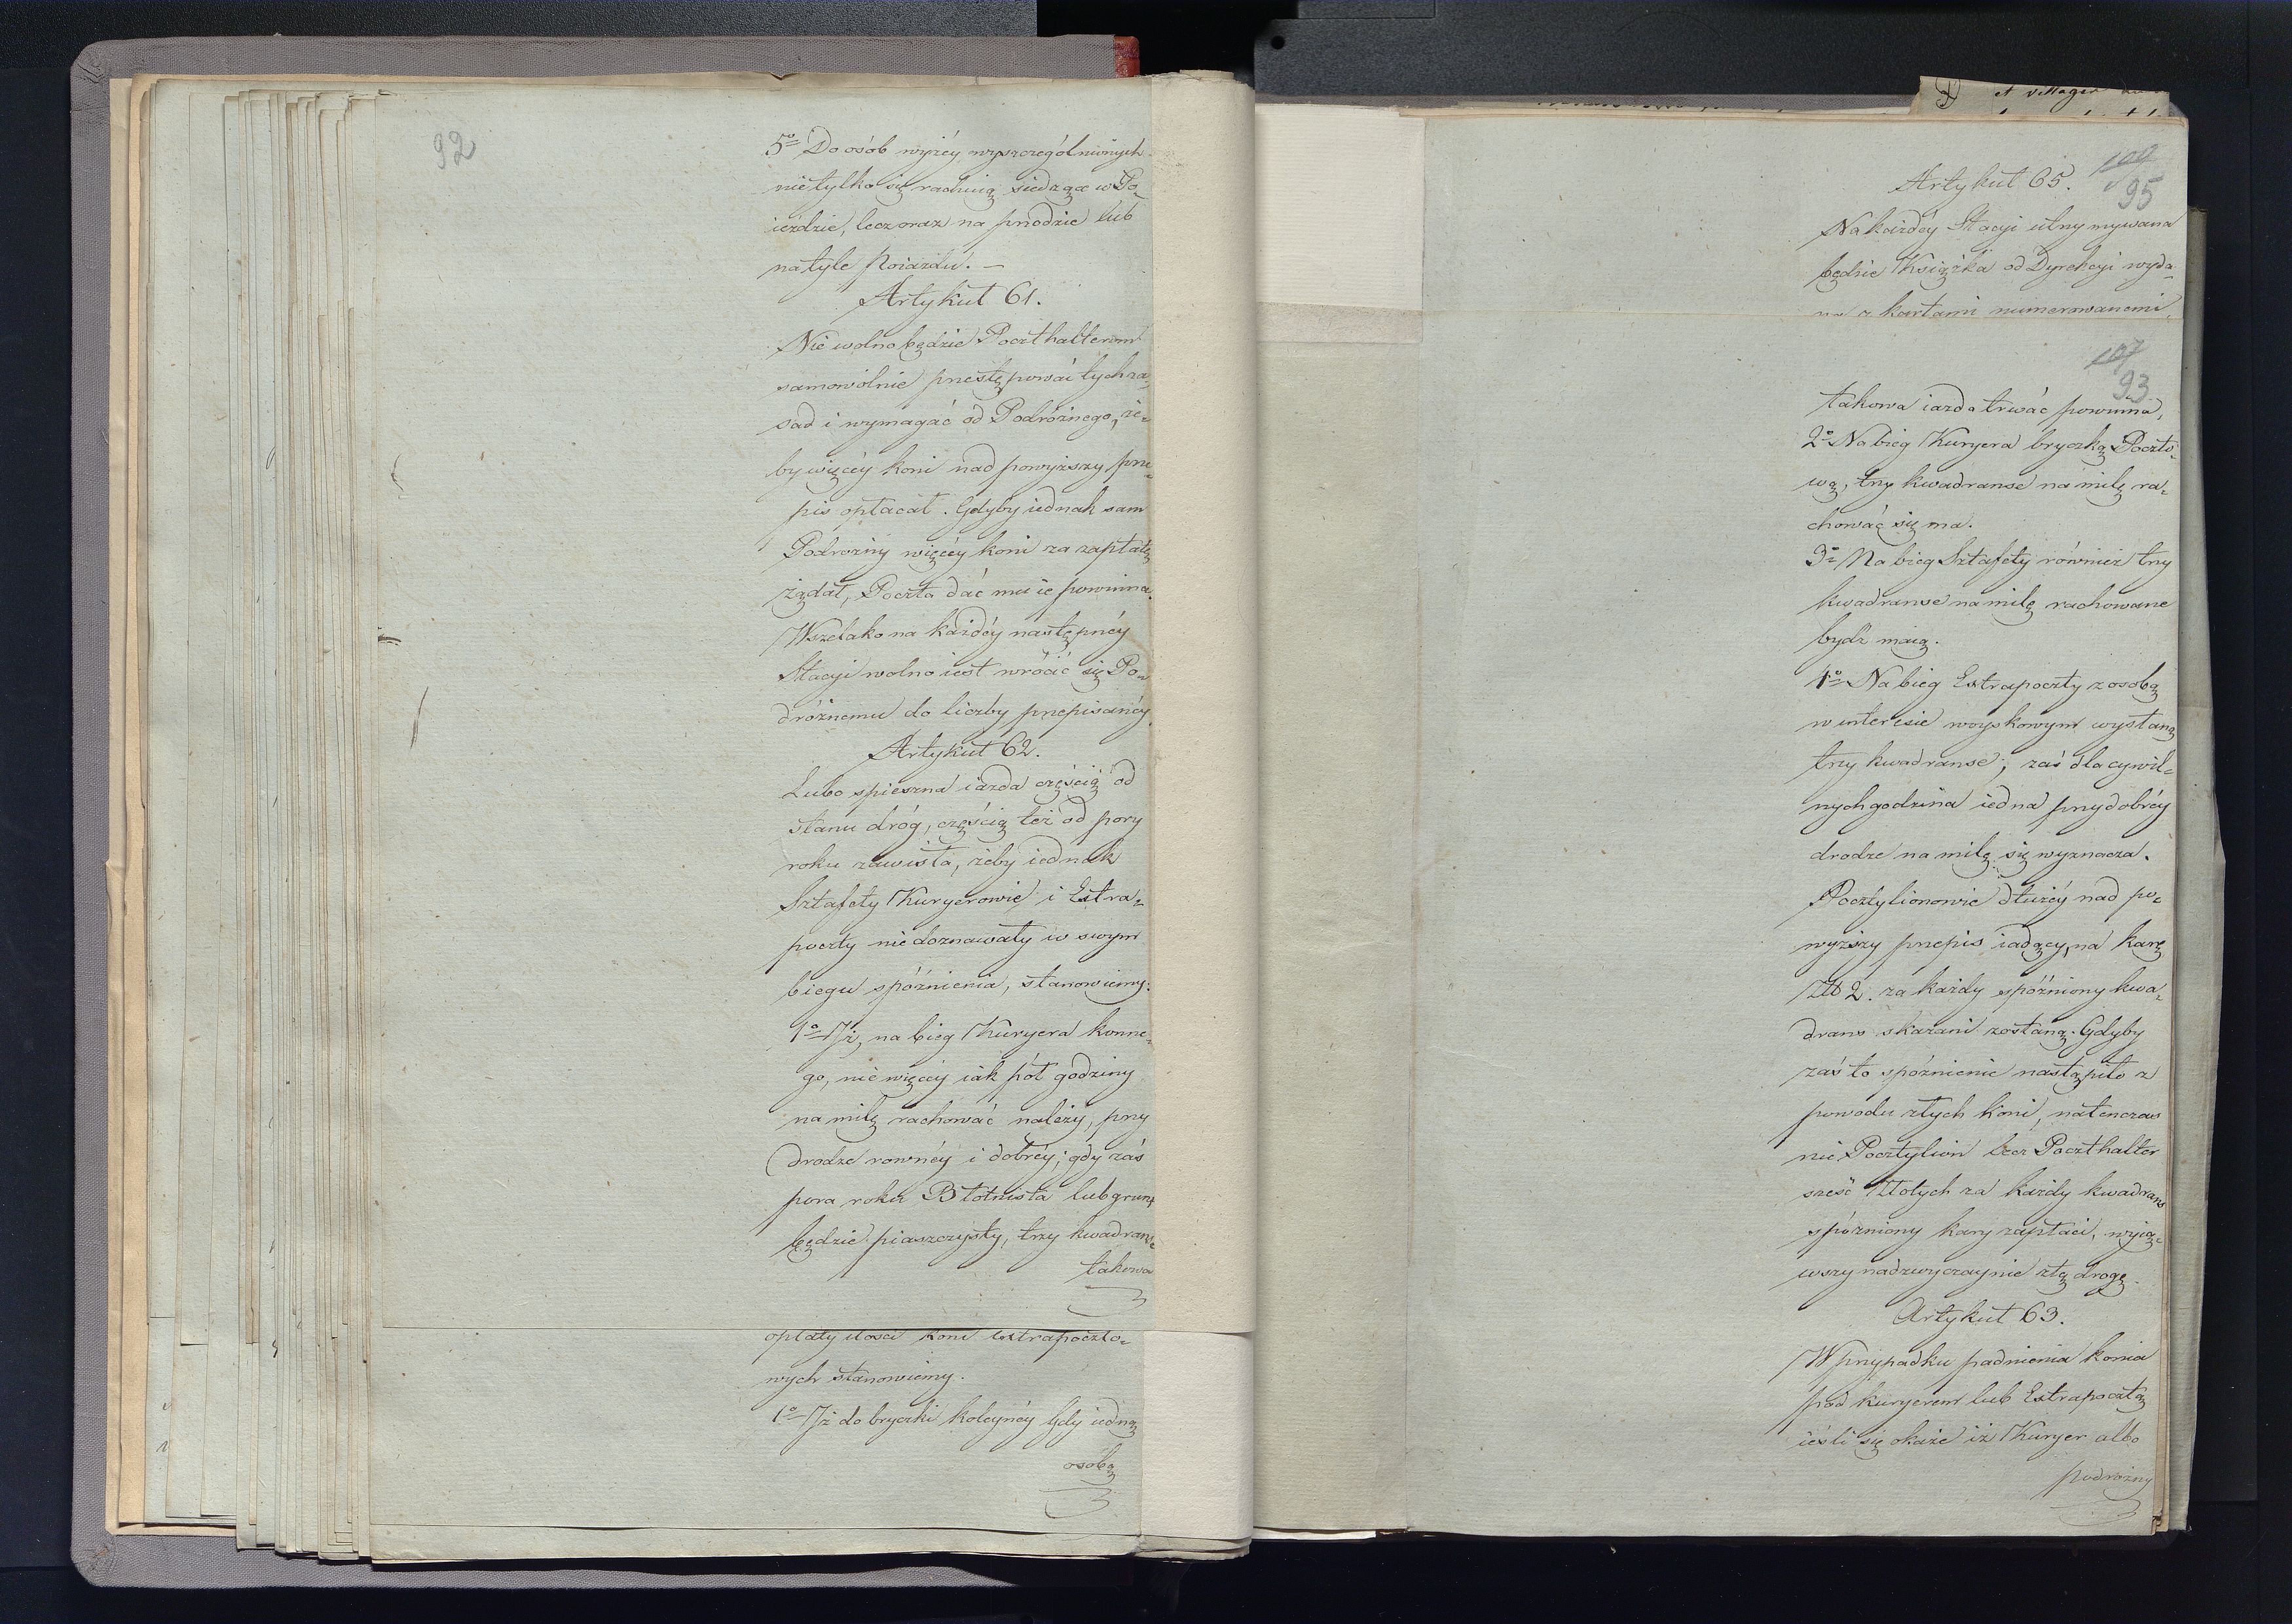 92
5º Do osób wyżéy wyszczególnionych
nietylko się rachuią siedzące w Po-
ieździe, lecz oraz na przodzie lub
na tyle Poiazdu. —
Artykuł 61.
Nie wolno będzie Poczthalterom
samowolnie przestępować tych za-
sad i wymagać od Podróżnego, że-
by więcéy koni nad powyższy prze-
pis opłacał. Gdyby iednak sam
Podrozny więcéy koni za zapłatę
żądał, Poczta dać mu ie powinna.
Wszelako na każdéy następnéy
Stacyi wolno iest wrócić się Po-
dróżnemu do liczby przepisanéy.
Artykuł 62.
Lubo spieszna iazda częścią od
stanu dróg, częścią też od pory
roku zawisła, żeby iednak
Sztafety Kuryerowie i Extra-
poczty nie doznawały w swym
biegu spóźnienia, stanowiemy:
1º Iż, na bieg Kuryera konne-
go, nie więcéy iak pół godziny
na milę rachować należy, przy
drodze rownéy i dobréy; gdy zaś
pora roku Błotnista lub grunt
będzie piaszczysty, trzy kwadranse
takowa
opłaty ilości koni Extrapoczto-
wych stanowiemy.
1º Iż do bryczki koleynéy gdy iedną
osobą
Artykuł 65.
107
95
Na każdéy Stacyi utrzymywana
będzie Książka od Dyrekcyi wyda-
na z kartami numerowanemi,
107
93
takowa iazda trwać powinna,
2º Na bieg Kuryera bryczką Poczto-
wą, trzy kwadranse na milę ra-
chować się ma.
3º Na bieg Sztafety równiez trzy
kwadranse na milę rachowane
bydź maią.
4º Na bieg Extrapoczty z osobą
w interesie woyskowym wysłaną
trzy kwadranse; zaś dla cywil-
nych godzina iedna przy dobréy
drodze na milę się wyznacza.
Pocztylionowie dłużéy nad po-
wyższy przepis iadący, na karę
Złt 2. za każdy spóźniony kwa-
drans skazani zostaną. Gdyby
zaś to spóznienie nastąpiło z
powodu złych koni, natenczas
nie Pocztylion lecz Poczthalter
sześć Złotych za każdy kwadrans
spózniony kary zapłaci, wyią-
wszy nadzwyczaynie złą drogę.
Artykuł 63.
W przypadku padnienia konia
pod kuryerem lub Extrapocztą
ieśli się okaże iż Kuryer albo
podrożny